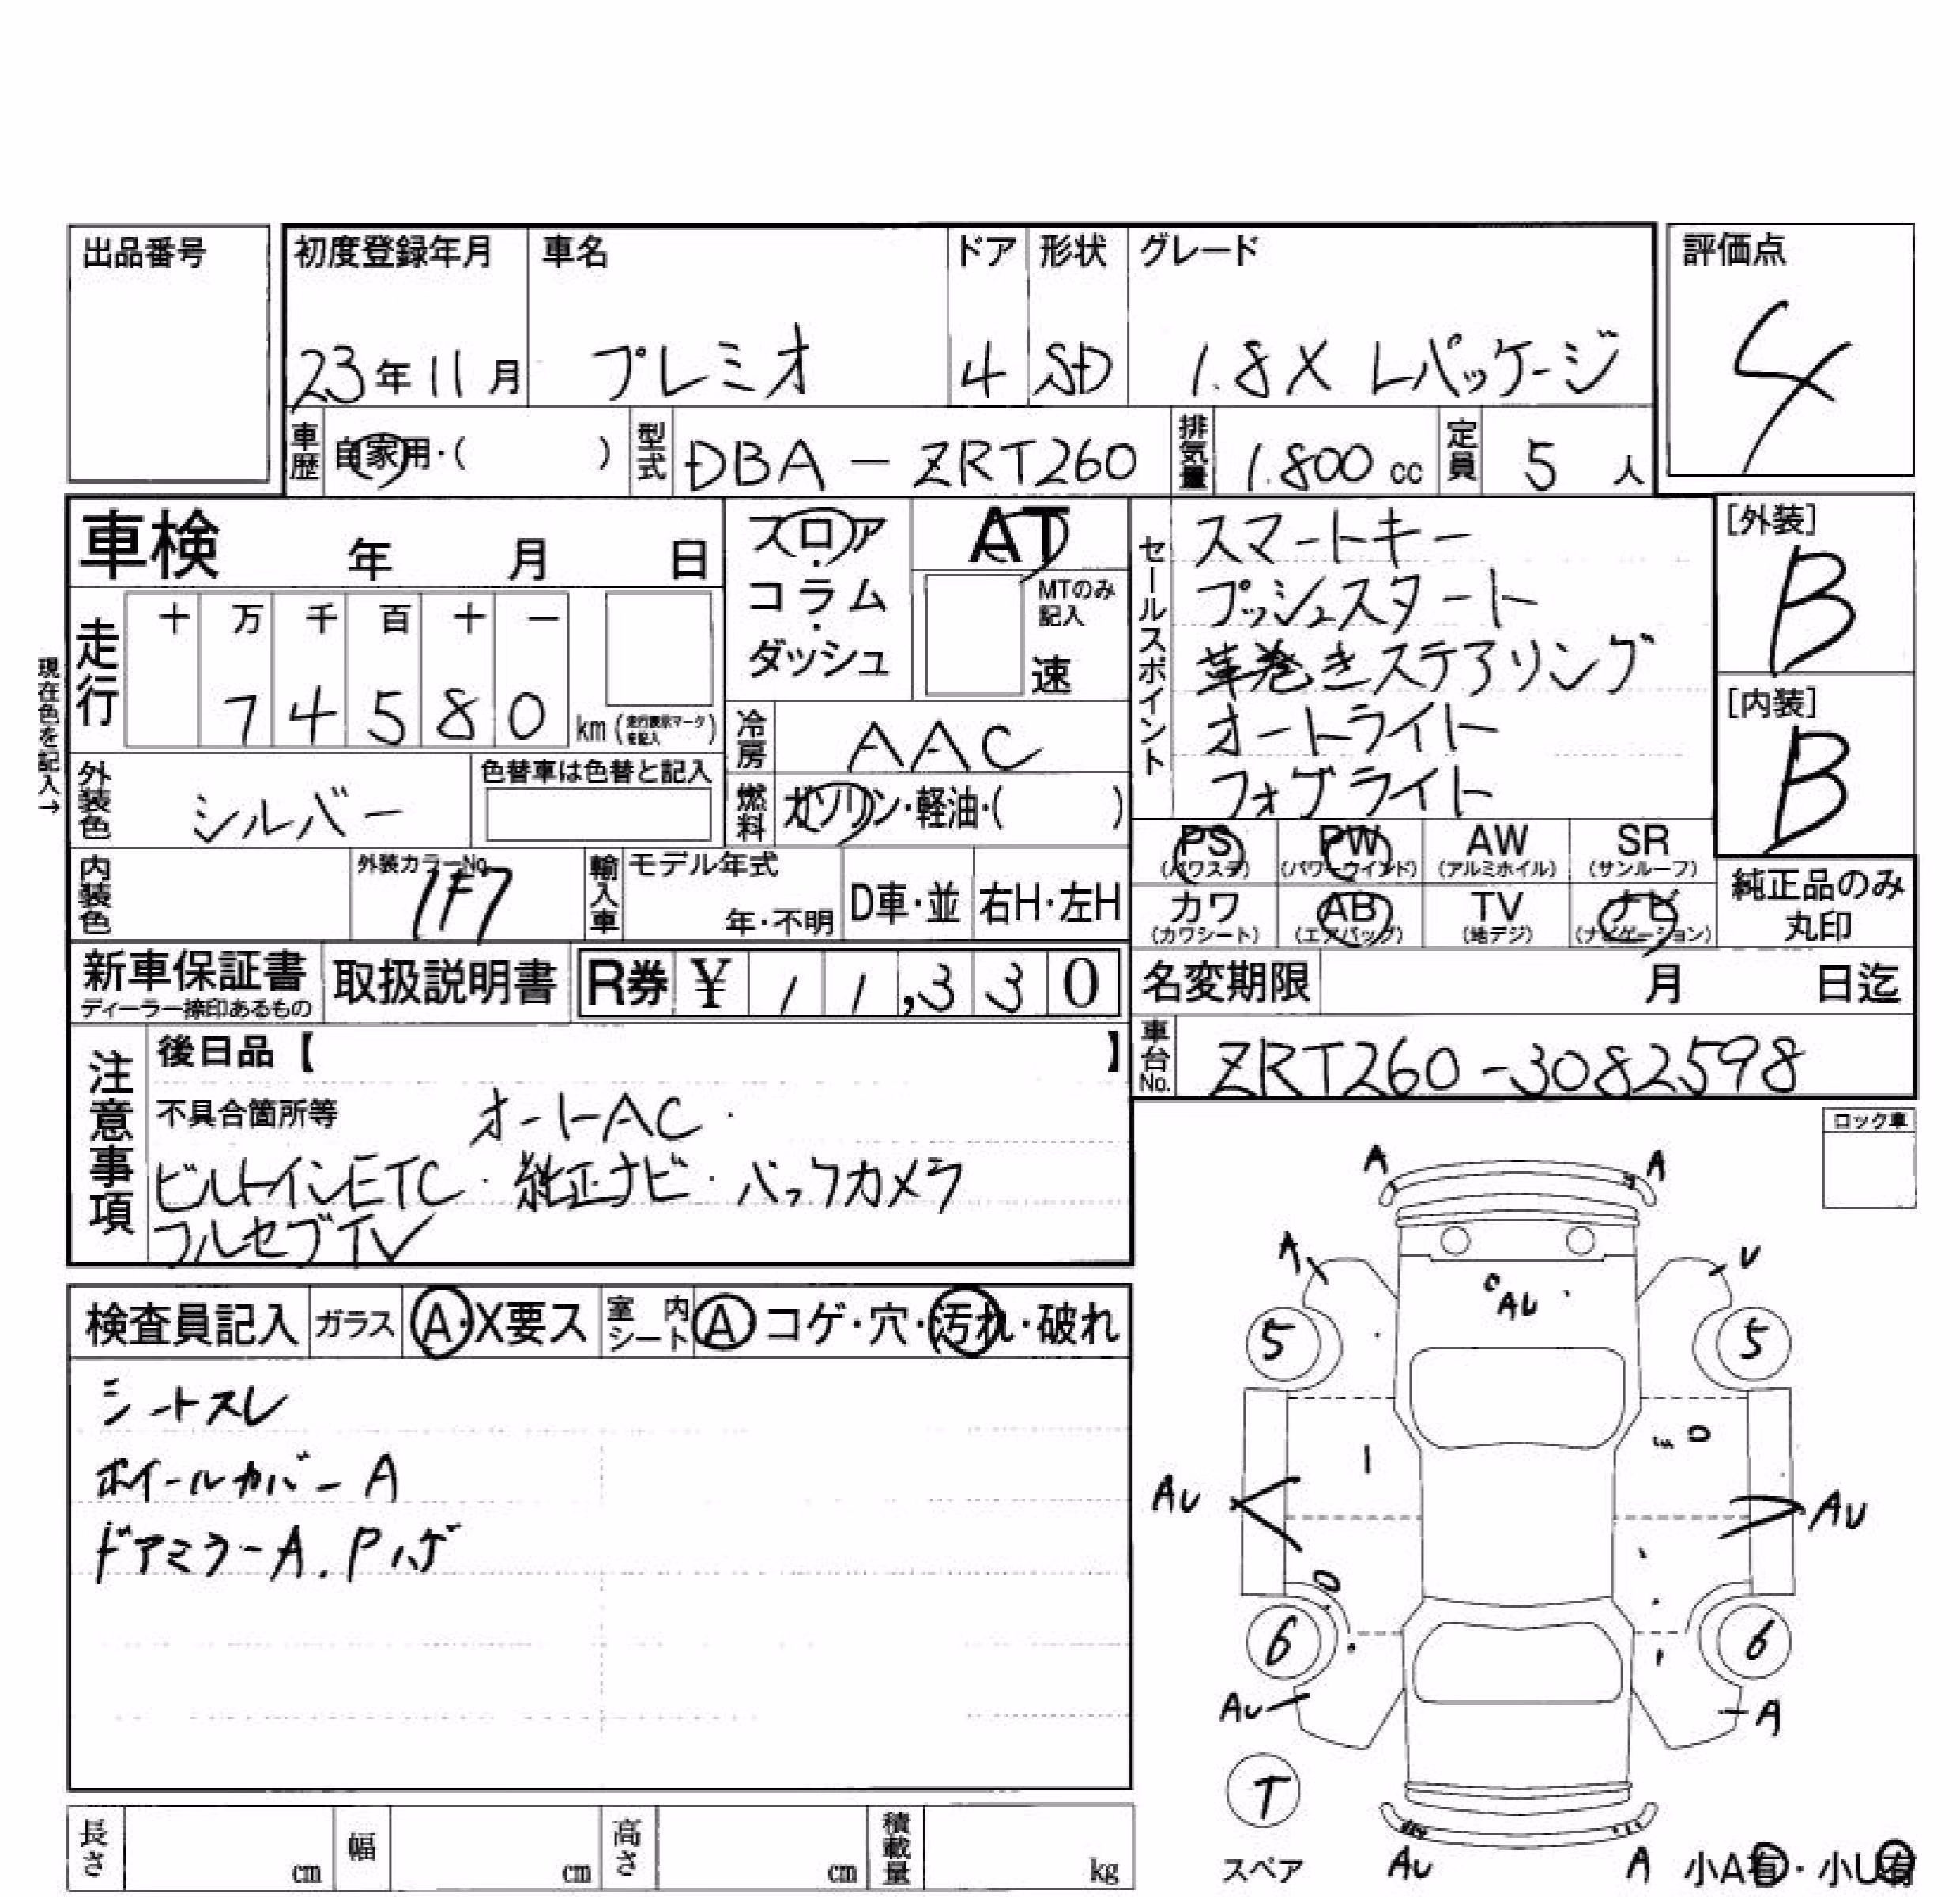 出品番号
初度登録年月 車名 ドア 形状 グレード
23年11月 プレミオ 4 SD 1.8X Lパッケージ
評価点
4
車歴 自家用・( ) 型式 DBA-ZRT260 排気量 1.800 cc 定員 5 人
車検 年 月 日
フロア・コラム・ダッシュ
AT
MTのみ記入
速
セールスポイント
スマートキー
プッシュスタート
革巻きステアリング
オートライト
フォブライト
[外装]
B
[内装]
B
現在色を記入→
走行 十 万 千 百 十 一
74580 km (走行表示マークを記入)
冷房 AAC
外装色 シルバー 色替車は色替と記入
燃料 ガソリン・軽油・( )
内装色 外装カラーNo. 1F7
輸入車 モデル年式 年・不明 D車・並 右H・左H
PS (パワステ) PW (パワーウインド) AW (アルミホイル) SR (サンルーフ)
カワ (カワシート) AB (エアバッグ) TV (地デジ) ナビ (ナビゲーション)
純正品のみ丸印
新車保証書 ディーラー捺印あるもの 取扱説明書 R券 ¥ 11,330
名変期限 月 日迄
車台No. ZRT260-3082598
注意事項
後日品【 】
不具合箇所等 オートAC・
ビルトインETC・純正ナビ・バックカメラ
フルセグTV
ロック車
検査員記入 ガラス A・X要ス 室内シート A コゲ・穴・汚れ・破れ
シートスレ
ホイールカバーA
ドアミラーA.Pハゲ
A A
A U
AU
5 5
AU AU
6 6
AU A
T
スペア
AU A
小A有・小U有
長さ cm 幅 cm 高さ cm 積載量 kg